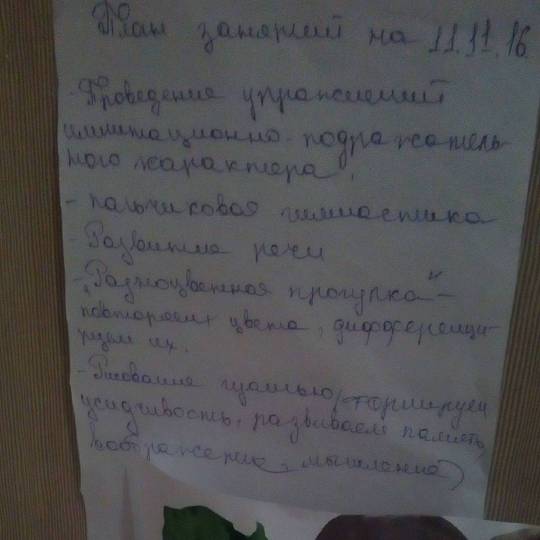 План занятий на 11.11.16
- Проведение упражнений
имитационно-подражатель-
ного характера,
- пальчиковая гимнастика
- Развитие речи
- "Разноцветная прогулка" -
повторяем цвета, дифференци-
руем их.
- Рисование (формируем
усидчивость, развиваем память,
воображение, мышление)